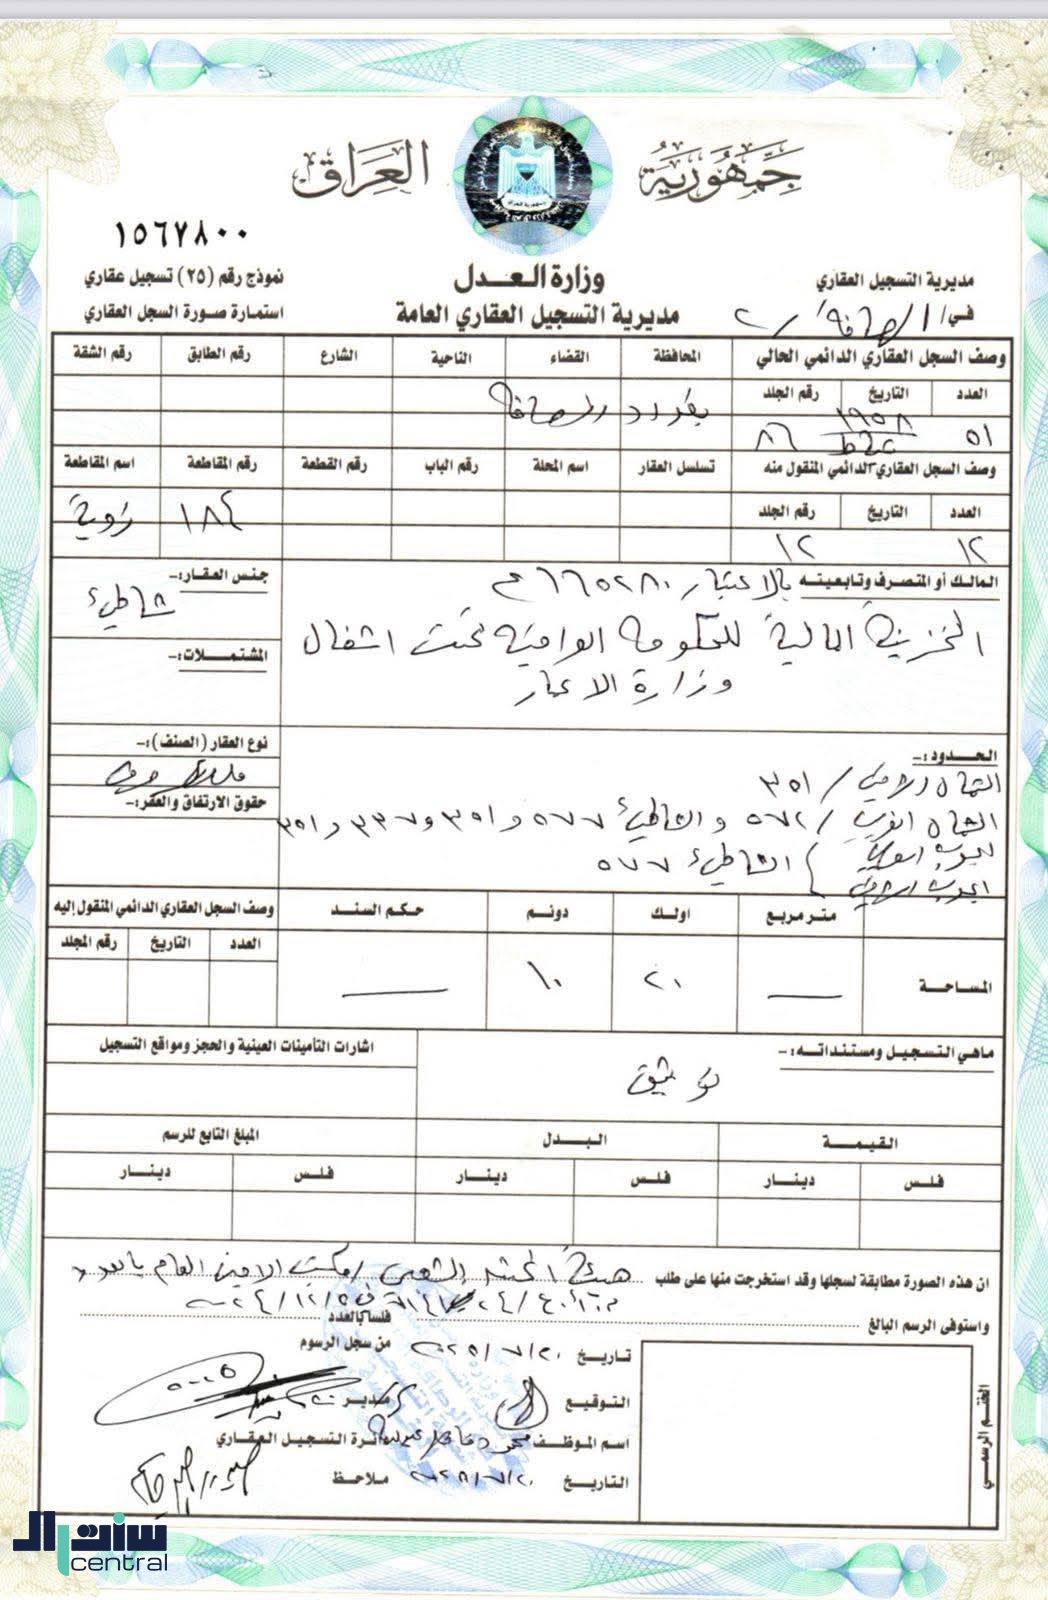 جمهورية العراق
١٥٦٧٨٠٠
وزارة العدل
مديرية التسجيل العقاري العامة
مديرية التسجيل العقاري
في / الرصافة / ٢
نموذج رقم (٢٥) تسجيل عقاري
استمارة صورة السجل العقاري
وصف السجل العقاري الدائمي الحالي المحافظة القضاء الناحية الشارع رقم الطابق رقم الشقة
العدد التاريخ رقم الجلد
بغداد الرصافة
٥١ ١٩٥٨ ٨٦
وصف السجل العقاري الدائمي المنقول منه تسلسل العقار اسم المحلة رقم الباب رقم القطعة رقم المقاطعة اسم المقاطعة
العدد التاريخ رقم الجلد
١٨٤ زوية
١٢ ١٢
المالك أو المتصرف وتابعيته بالاعتبار
الخزينة المالية للحكومة العراقية تحت اشغال
وزارة الاعمار
جنس العقار:-
شاطيء
المشتملات:-
الحدود:-
نوع العقار (الصنف):-
ملك صرف
حقوق الارتفاق والعقر:-
الشمال الشرقي / ٣٥١
الشمال الغربي / ٥٧٢ والشاطيء ٥٧٧ و ٣٥١ و ٣٣٧ و ٣٥١
الشاطيء ٥٧٧
متر مربع اولك دونم حكم السند وصف السجل العقاري الدائمي المنقول إليه
العدد التاريخ رقم المجلد
المساحة — ٢٠ ١٠ —
ماهي التسجيل ومستنداته:- اشارات التأمينات العينية والحجز ومواقع التسجيل
توثيق
القيمة البدل المبلغ التابع للرسم
فلس دينار فلس دينار فلس دينار
ان هذه الصورة مطابقة لسجلها وقد استخرجت منها على طلب هيئة الحشد الشعبي / مكتب الامين العام بالعدد
واستوفى الرسم البالغ فلسا بالعدد
تاريخ ٢٠٢٥/٧/٢٠ من سجل الرسوم
التوقيع مدير
اسم الموظف محمود دائرة التسجيل العقاري
التاريخ ملاحظ
الختم الرسمي
سنترال
central